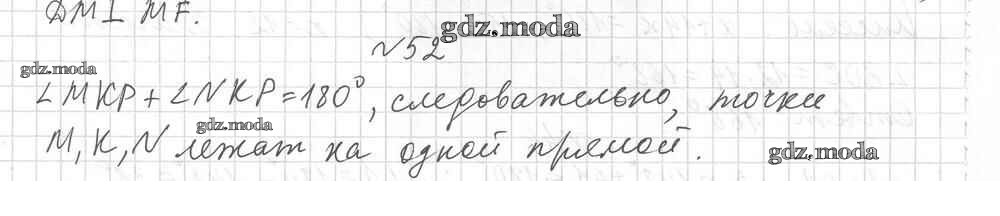 DM⊥MF.
gdz.moda
№52
gdz.moda
∠MKP+∠NKP=180°, следовательно, точки
gdz.moda
M, K, N лежат на одной прямой.
gdz.moda